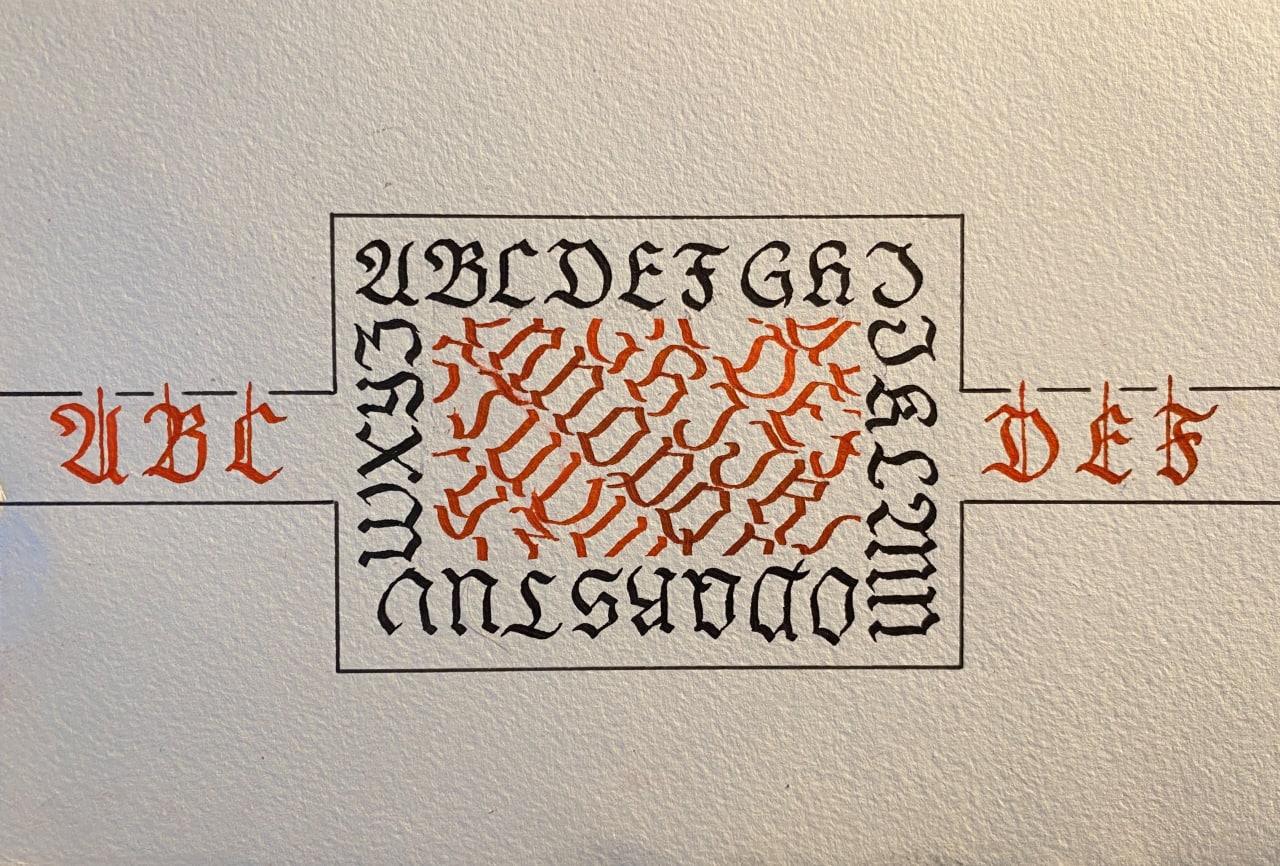 ABCDEFGHI
JKLMN
OPQRSTUV
WXYZ
ABC
DEF